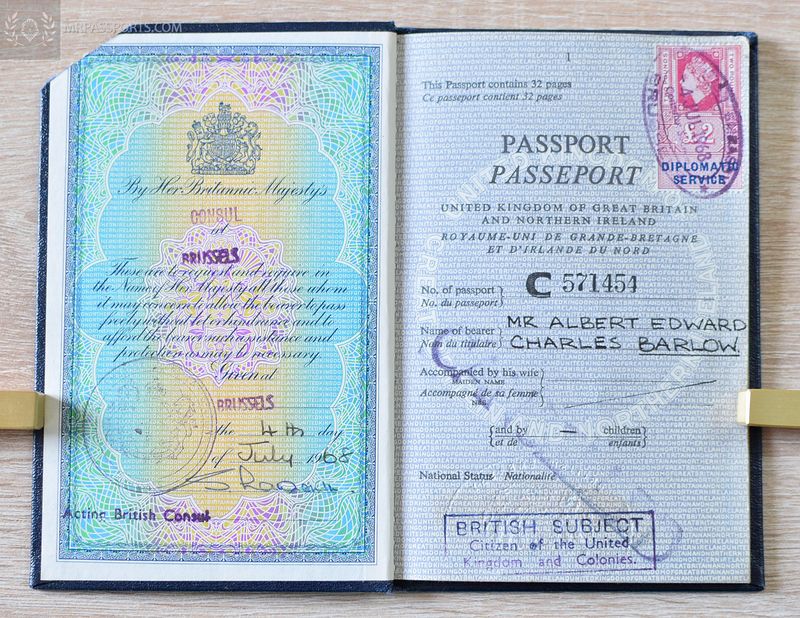 MRPASSPORTS.COM
By Her Britannic Majesty's
CONSUL
at
BRUSSELS
These are to request and require in
the Name of Her Majesty all those whom
it may concern to allow the bearer to pass
freely without let or hindrance and to
afford the bearer such assistance and
protection as may be necessary.
Given at
BRUSSELS
the 4th day
of July 1968
Acting British Consul
1
This Passport contains 32 pages
Ce passeport contient 32 pages
PASSPORT
PASSEPORT
UNITED KINGDOM OF GREAT BRITAIN
AND NORTHERN IRELAND
ROYAUME-UNI DE GRANDE-BRETAGNE
ET D'IRLANDE DU NORD
£2
DIPLOMATIC
SERVICE
No. of passport
No. du passeport
C 571454
Name of bearer
Nom du titulaire
MR ALBERT EDWARD
CHARLES BARLOW.
Accompanied by his wife
MAIDEN NAME
Accompagné de sa femme
NÉE
and by — children
et de enfants
National Status Nationalité
BRITISH SUBJECT
Citizen of the United
Kingdom and Colonies.